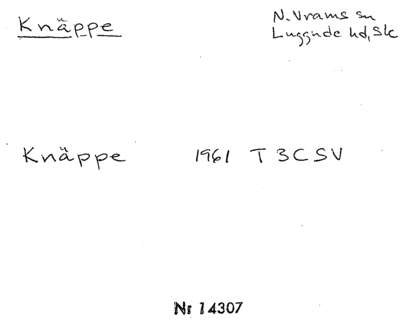 Knäppe
N. Vrams sn
Luggude hd, Sk
Knäppe 1961 T 3C SV
Nr 14307